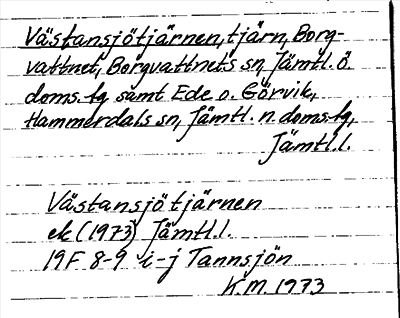 Västansjötjärnen, tjärn, Borg-
vattnet, Borgvattnets sn, Jämtl. ö.
doms.fg samt Ede o. Görvik,
Hammerdals sn, Jämtl. n. doms.fg,
Jämtl.l.
Västansjötjärnen
ek (1973) Jämtl.l.
19F 8-9 i-j Tannsjön
K.M. 1973